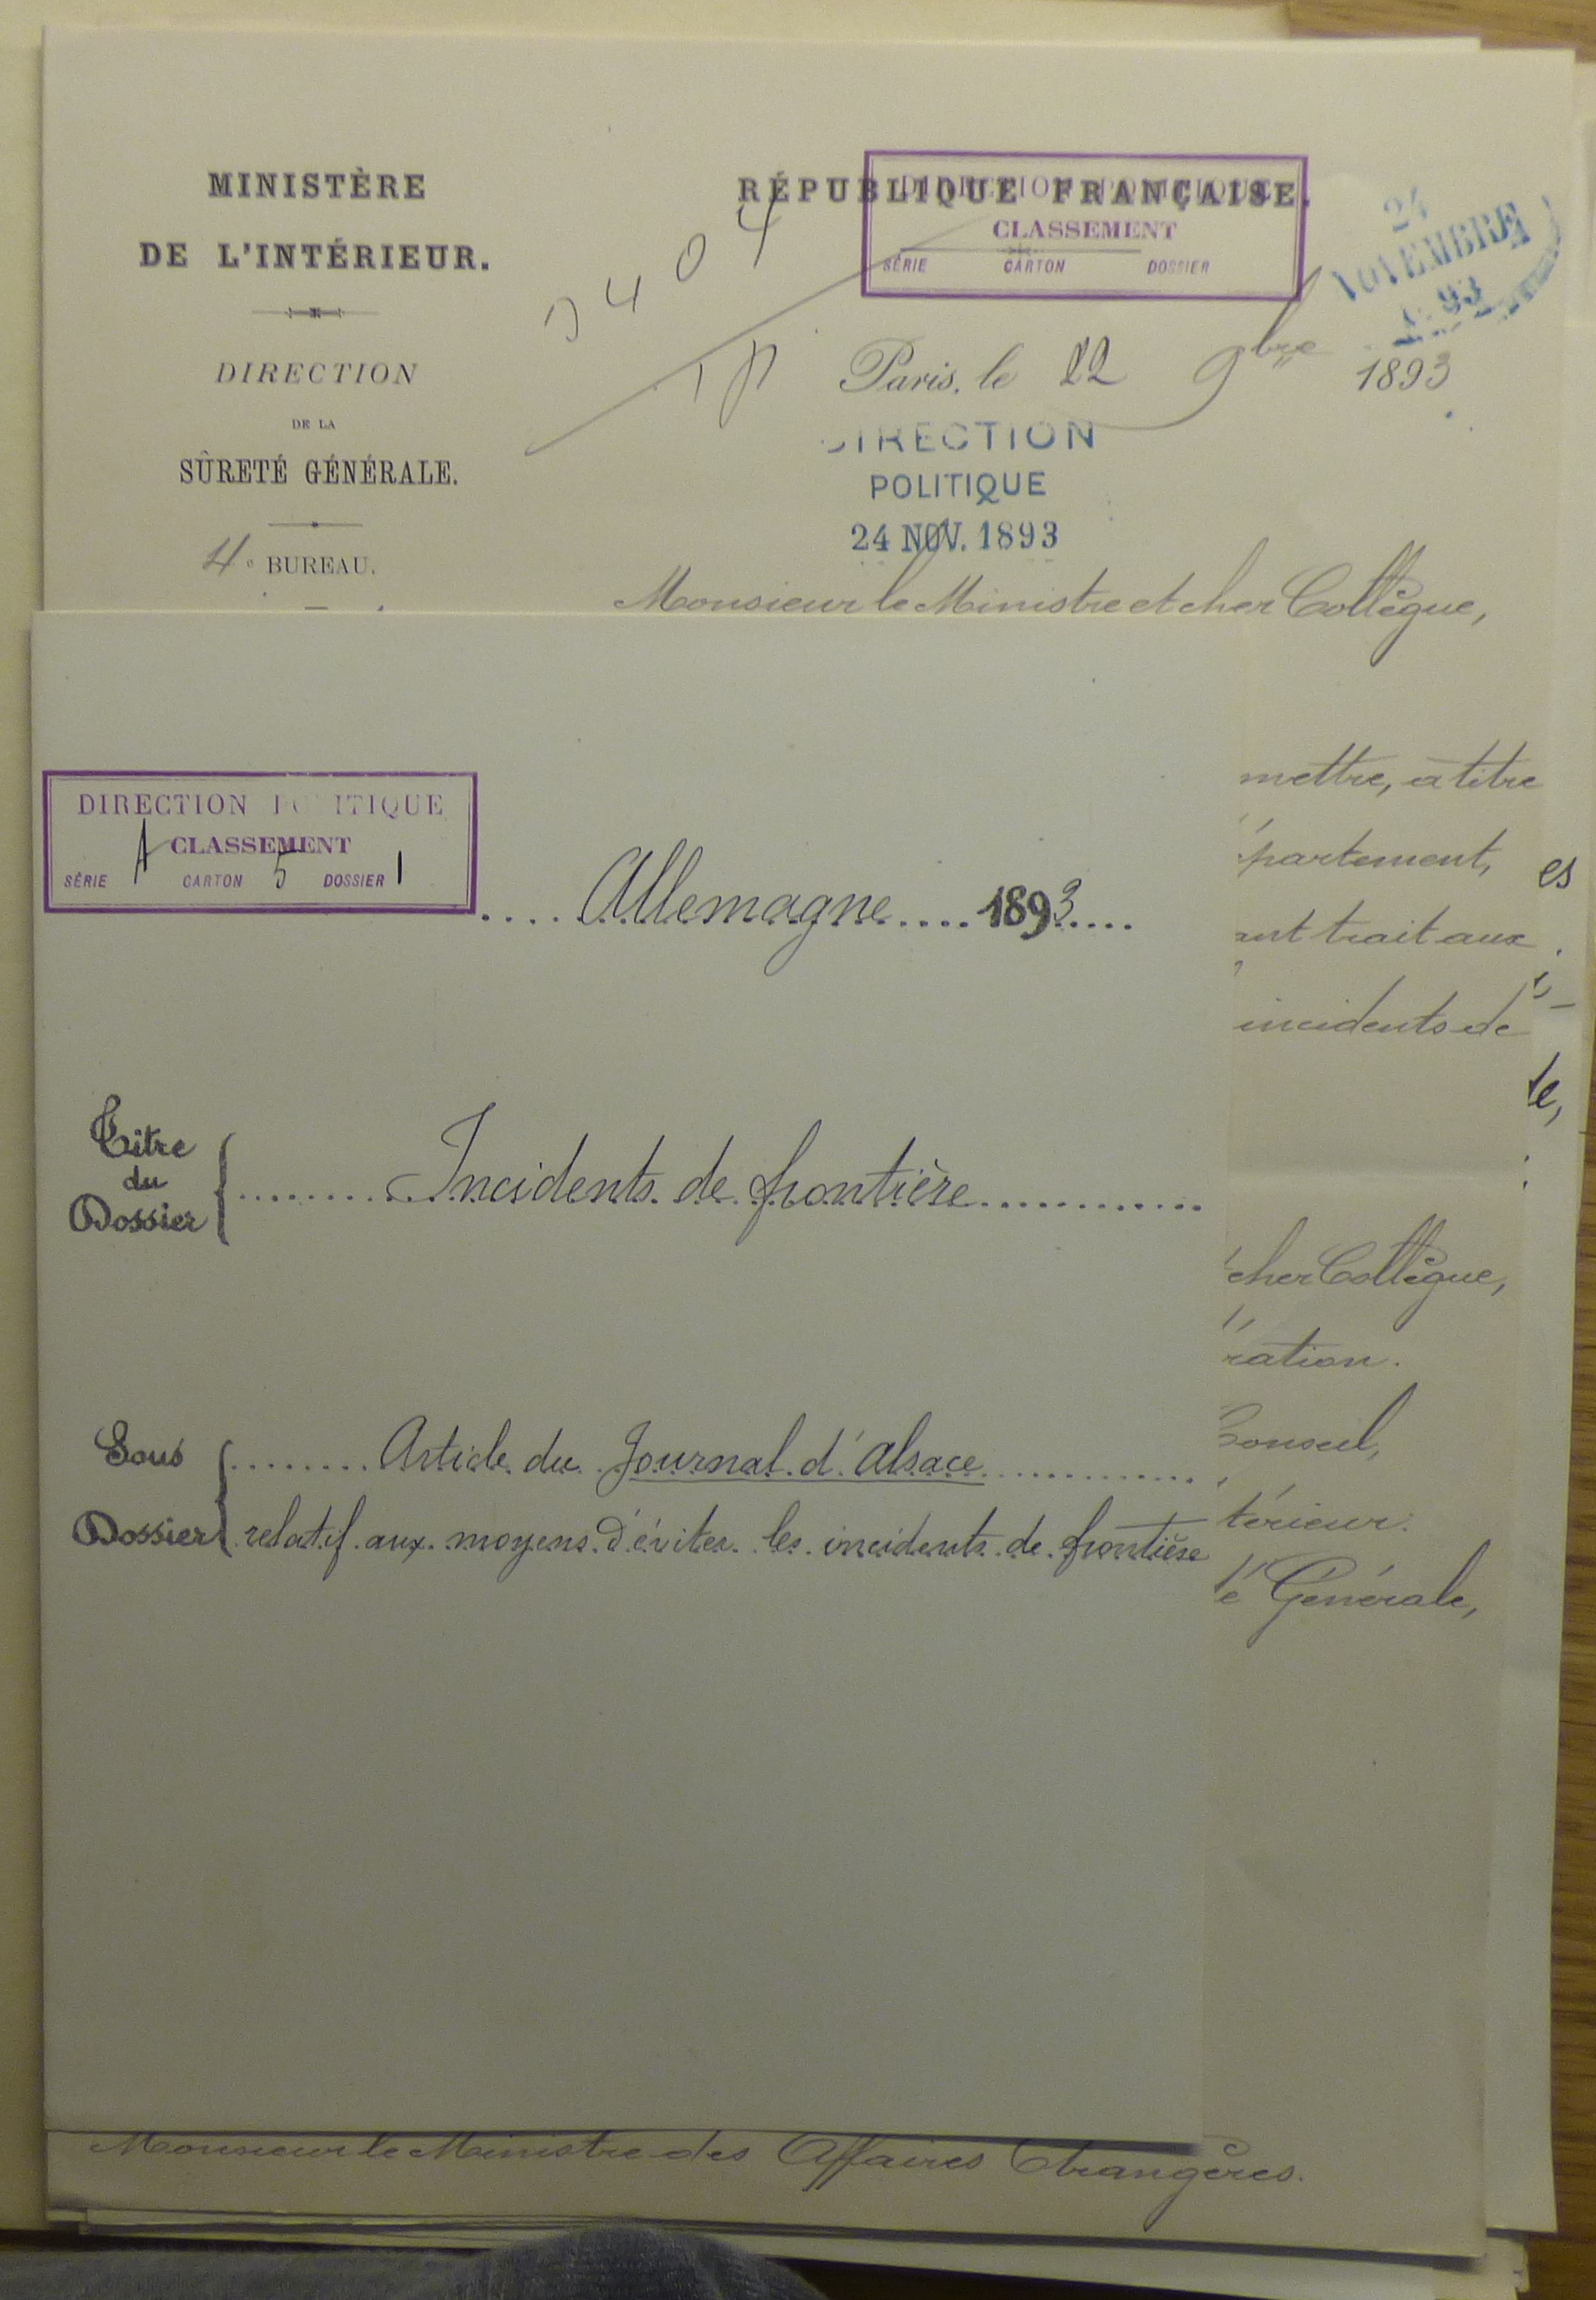 MINISTÈRE
DE L'INTÉRIEUR.
DIRECTION
DE LA
SÛRETÉ GÉNÉRALE.
4e BUREAU.
RÉPUBLIQUE FRANÇAISE.
CLASSEMENT
SÉRIE CARTON DOSSIER
24
NOVEMBRE
93
Paris, le 22 9bre 1893
DIRECTION
POLITIQUE
24 NOV. 1893
Monsieur le Ministre et cher Collègue,
DIRECTION POLITIQUE
CLASSEMENT
SÉRIE A CARTON 5 DOSSIER 1
Allemagne 1893
Titre
du
Dossier
Incidents de frontière
Sous
Dossier
Article du Journal d'Alsace
relatif aux moyens d'éviter les incidents de frontière
mettre, à titre
partement,
es
trait aux
incidents de
te,
cher Collègue,
ration.
Conseil,
térieur.
té Générale,
Monsieur le Ministre des Affaires Etrangères.